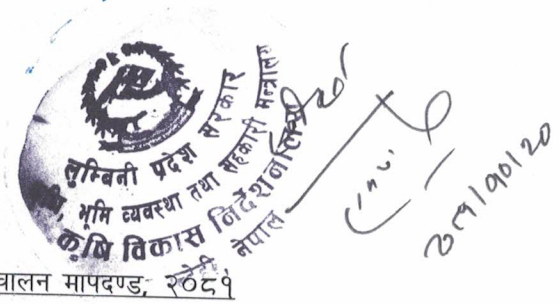 लुम्बिनी प्रदेश सरकार
कृषि, भूमि व्यवस्था तथा सहकारी मन्त्रालय
कृषि विकास निर्देशनालय
नेपाल
२०८१/१०/२०
चालन मापदण्ड, २०८१